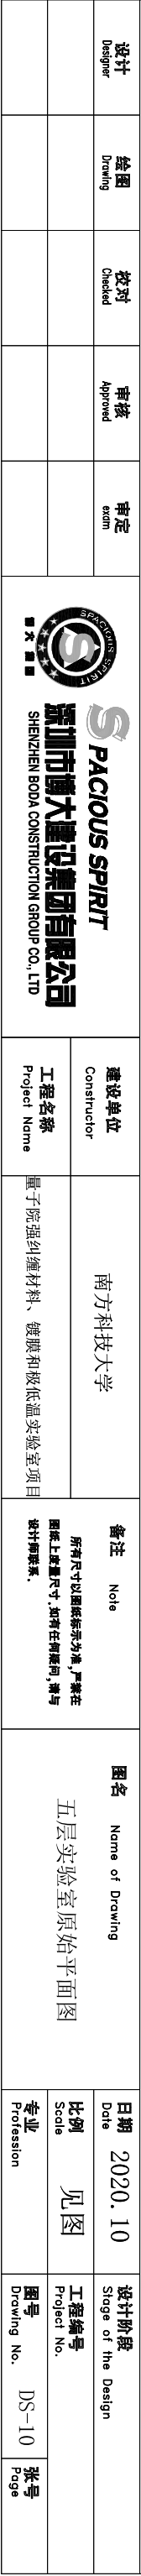 设计
Designer
绘图
Drawing
校对
Checked
审核
Approved
审定
exam
SPACIOUS SPIRIT
S
博大集团
S PACIOUS SPIRIT
深圳市博大建设集团有限公司
SHENZHEN BODA CONSTRUCTION GROUP CO., LTD
建设单位
Constructor
南方科技大学
工程名称
Project Name
量子院强纠缠材料、镀膜和极低温实验室项目
备注 Note
所有尺寸以图纸标示为准,严禁在
图纸上度量尺寸.如有任何疑问,请与
设计师联系.
图名 Name of Drawing
五层实验室原始平面图
日期
Date
2020.10
比例
Scale
见图
专业
Profession
设计阶段
Stage of the Design
工程编号
Project No.
图号
Drawing No.
DS-10
张号
Page